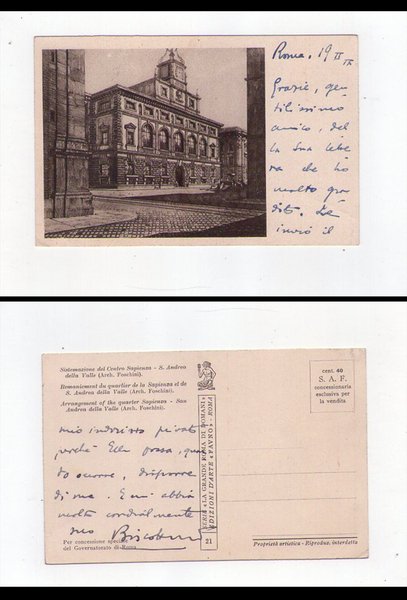 Roma, 19 II IX
Grazie, gen
tilissimo
amico, del
la sua lette
ra che ho
molto gra
dito. Le
invio il
Sistemazione del Centro Sapienza - S. Andrea
della Valle (Arch. Foschini).
Remaniement du quartier de la Sapienza et de
S. Andrea della Valle (Arch. Foschini).
Arrangement of the quarter Sapienza - San
Andrea della Valle (Arch. Foschini).
mio indirizzo privato
perchè Ella possa, quan
do occorre, disporre
di me. E mi abbia
molto cordialmente
suo
Per concessione speciale
del Governatorato di Roma
SERIE «LA GRANDE ROMA DI DOMANI»
EDIZIONI D'ARTE «FAUNO» - ROMA
21
cent. 40
S. A. F.
concessionaria
esclusiva per
la vendita
Proprietà artistica - Riproduz. interdetta